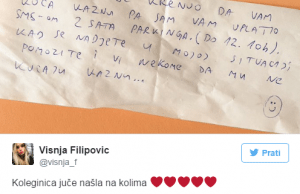 KRENUO DA VAM
KAZNU PA SAM VAM UPLATIO
SMS-OM 2 SATA PARKINGA. (DO 12.10h).
KAD SE NAĐETE U MOJOJ SITUACIJI
POMOZITE I VI NEKOME DA MU NE
KAZNU...
Visnja Filipovic
@visnja_f
Prati
Koleginica juče našla na kolima ❤❤❤❤❤